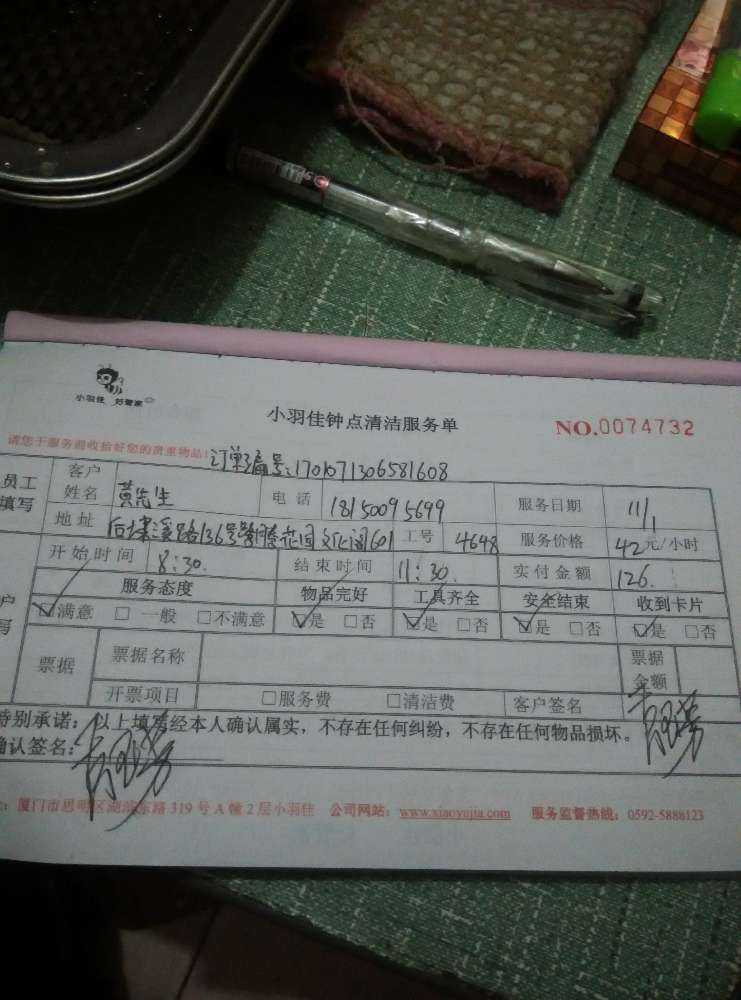 小羽佳 好管家
小羽佳钟点清洁服务单
NO.0074732
请您于服务前收拾好您的贵重物品!
订单编号:1701071306581608
员工
填写
客户
姓名 黄先生 电话 18150095699 服务日期 11/1
地址 后埭溪路136号 花园文化阁601 工号 4648 服务价格 42元/小时
开始时间 8:30. 结束时间 11:30. 实付金额 126.
服务态度 物品完好 工具齐全 安全结束 收到卡片
☑满意 □一般 □不满意 ☑是 □否 ☑是 □否 ☑是 □否 ☑是 □否
户
写
票据 票据名称 票据
金额
开票项目 □服务费 □清洁费 客户签名
特别承诺:以上填写经本人确认属实,不存在任何纠纷,不存在任何物品损坏。
确认签名:
厦门市思明区湖滨东路319号A幢2层小羽佳 公司网站:www.xiaoyujia.com 服务监督热线:0592-5886123